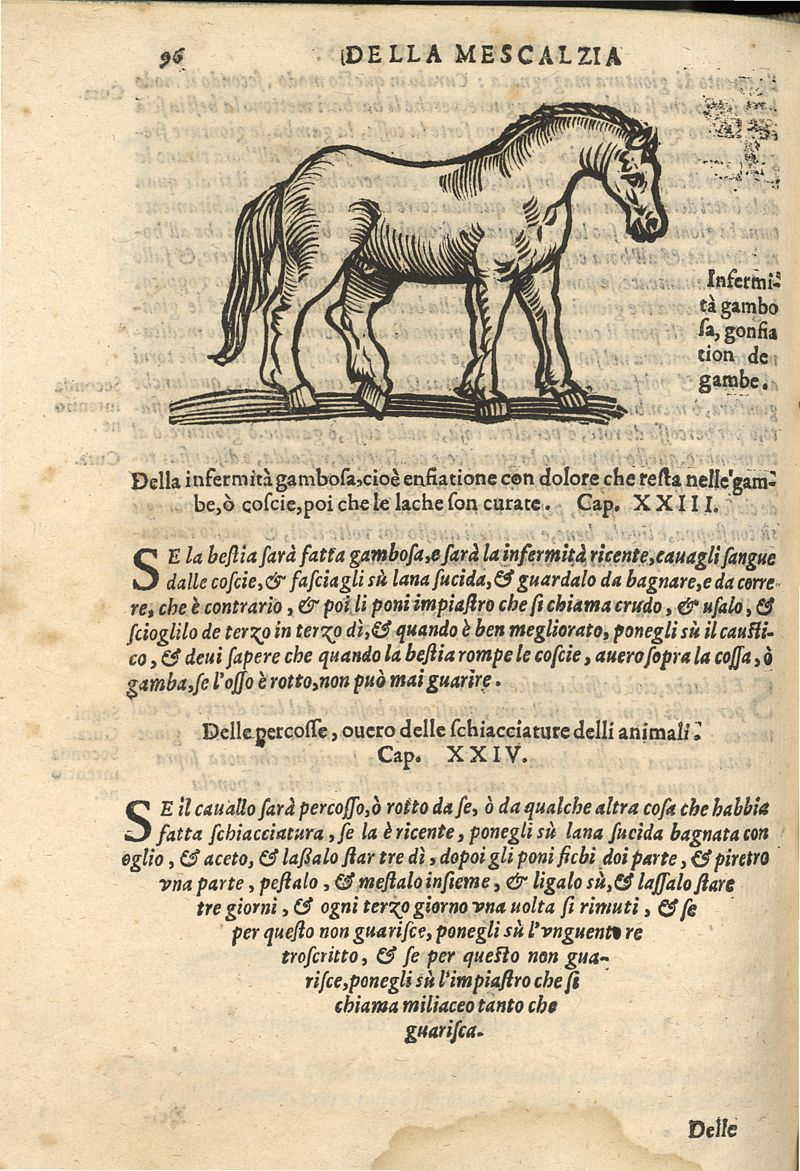 96
DELLA MESCALZIA
Infermi-
tà gambo
ſa, gonfia
tion de
gambe.
Della infermità gamboſa,cioè enfiatione con dolore che reſta nelle gam-
be,ò coſcie,poi che le lache ſon curate. Cap. XXIII.
SE la beſtia ſarà fatta gamboſa,e ſarà la infermità ricente,cauagli ſangue
dalle coſcie,& faſciagli sù lana ſucida,& guardalo da bagnare,e da corre
re, che è contrario, & poi li poni impiaſtro che ſi chiama crudo, & uſalo, &
ſcioglilo de terzo in terzo dì,& quando è ben megliorato, ponegli sù il cauſti-
co, & deui ſapere che quando la beſtia rompe le coſcie, auero ſopra la coſſa, ò
gamba,ſe l'oſſo è rotto,non può mai guarire.
Delle percoſſe, overo delle ſchiacciature delli animali.
Cap. XXIV.
SE il cauallo ſarà percoſſo,ò rotto da ſe, ò da qualche altra coſa che habbia
fatta ſchiacciatura, ſe la è ricente, ponegli sù lana ſucida bagnata con
oglio, & aceto, & laßalo ſtar tre dì, dopoi gli poni fichi doi parte, & piretro
vna parte, peſtalo, & meſtalo inſieme, & ligalo sù,& laſſalo ſtare
tre giorni, & ogni terzo giorno vna uolta ſi rimuti, & ſe
per queſto non guariſce, ponegli sù l'vnguento re
troſcritto, & ſe per queſto non gua-
riſce,ponegli sù l'impiaſtro che ſi
chiama miliaceo tanto che
guariſca.
Delle